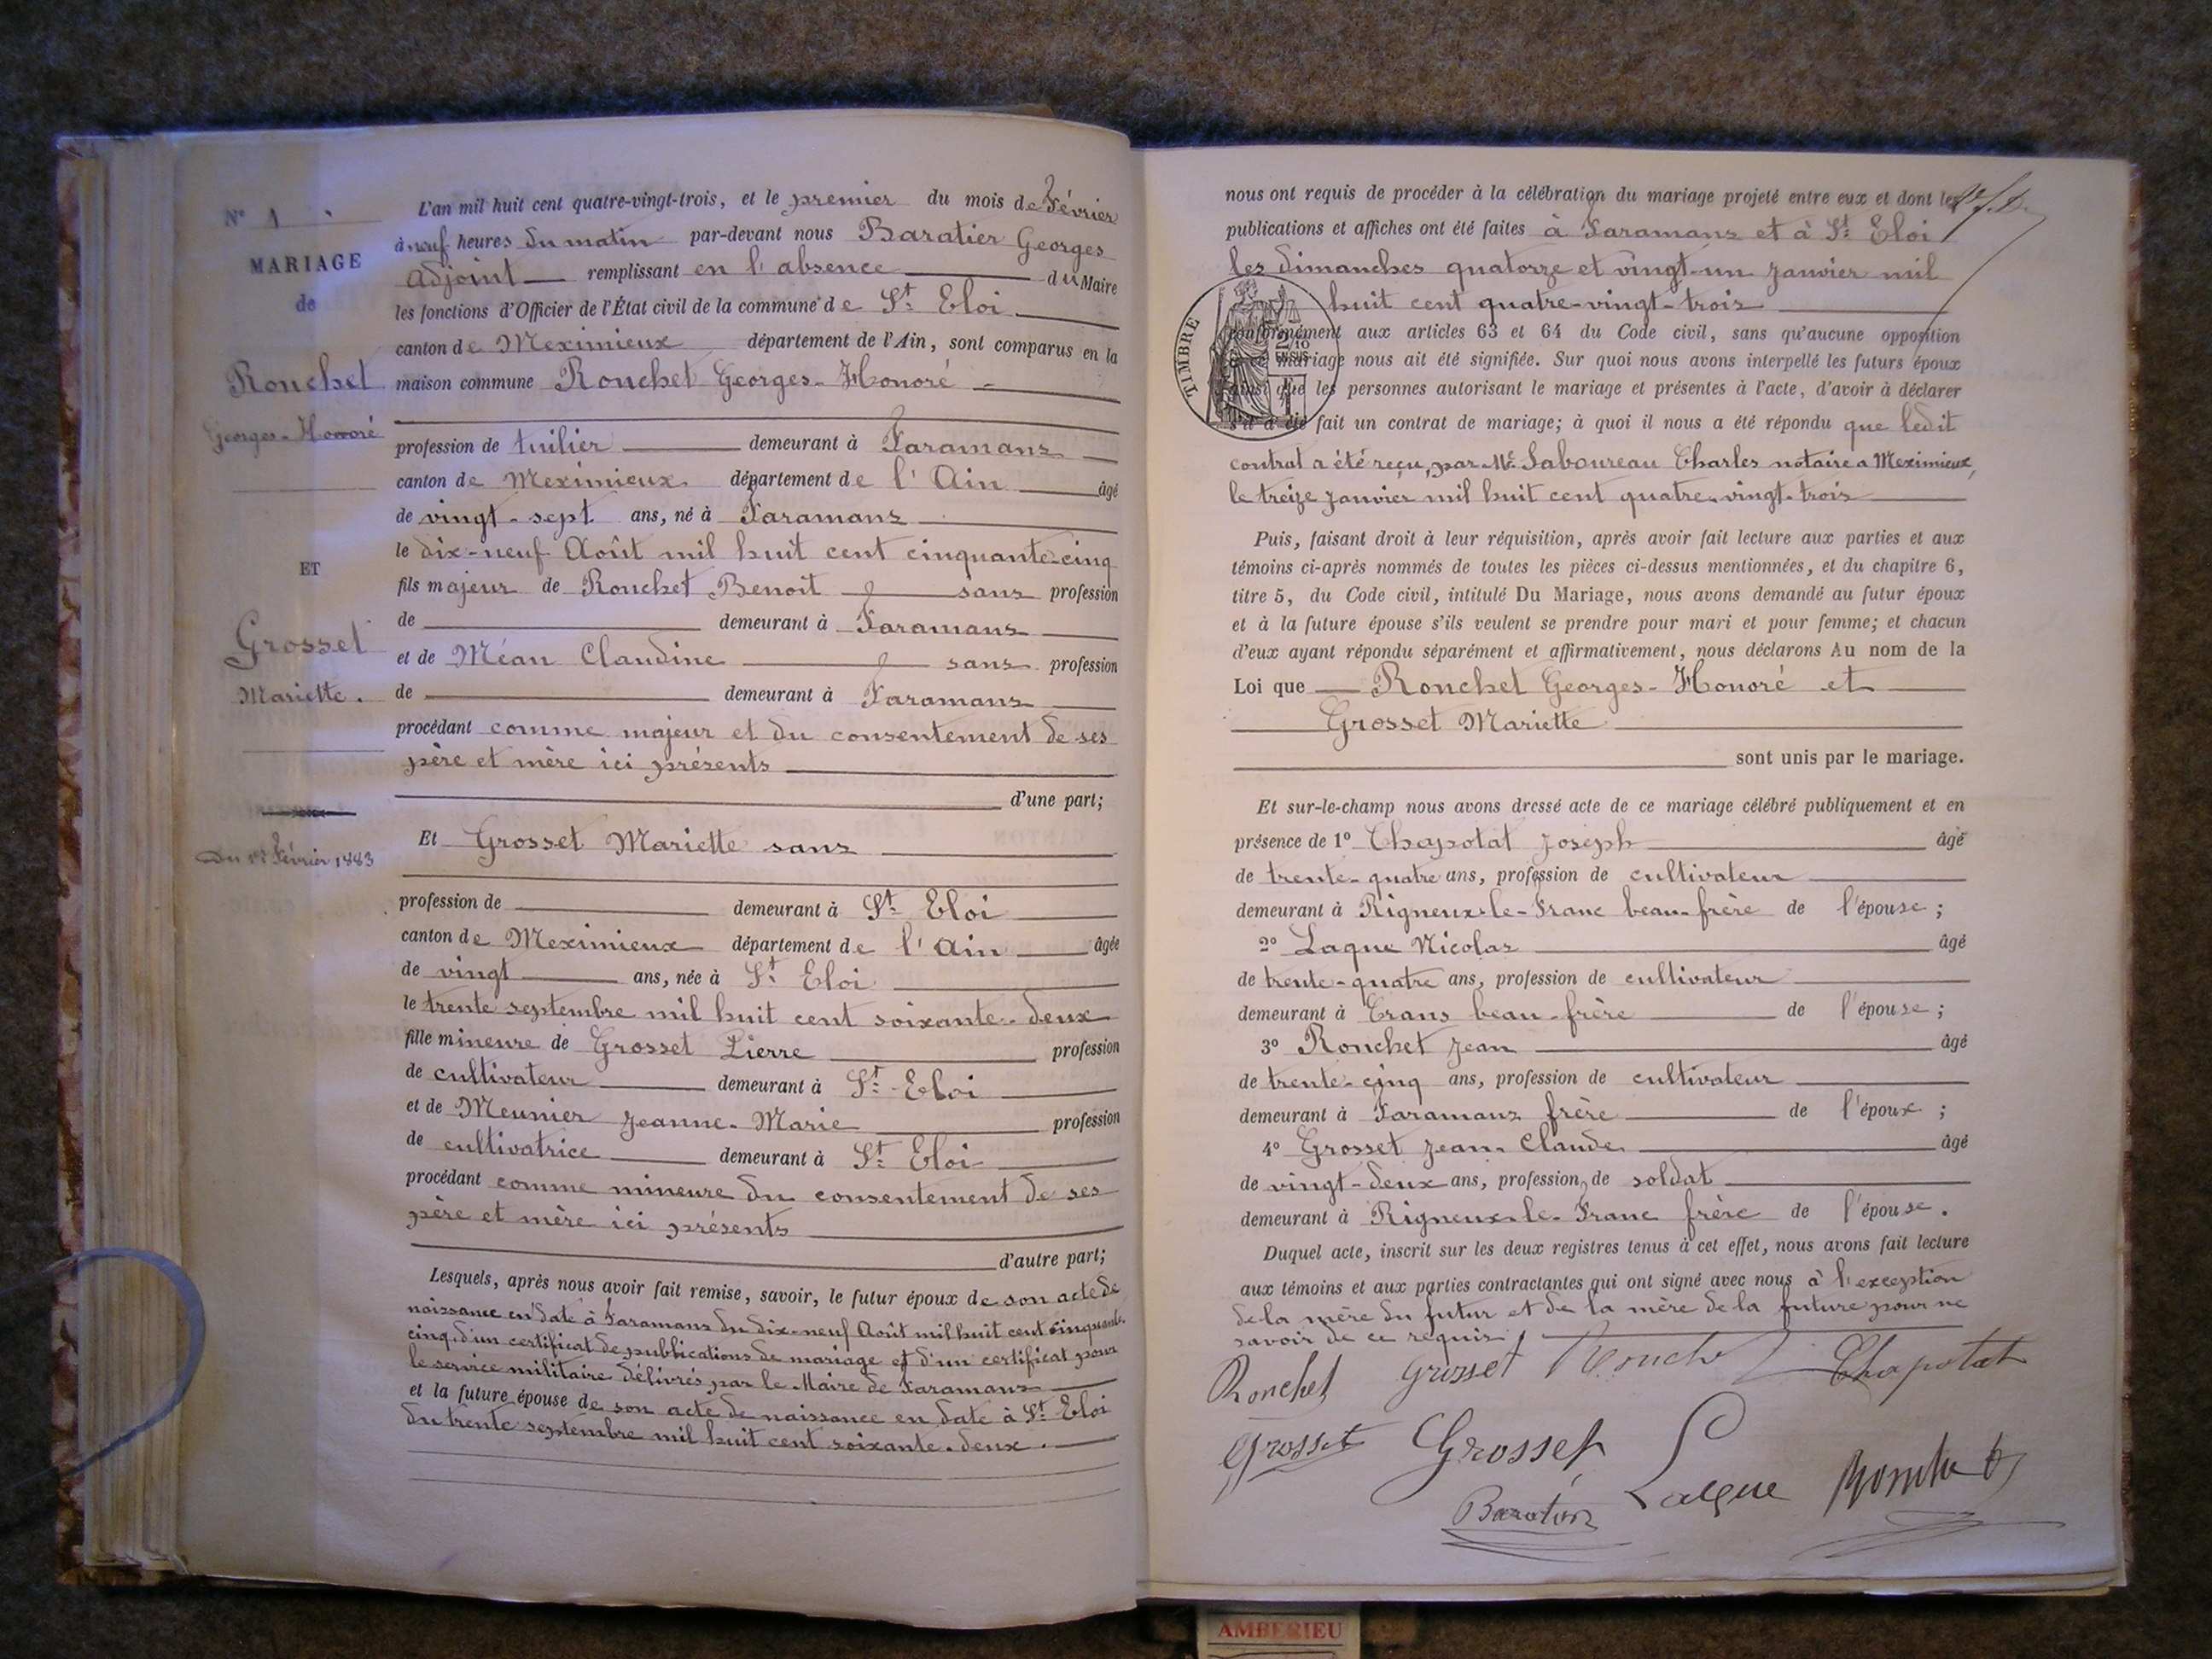 N° 1
MARIAGE
de
Ronchet
Georges-Honoré
ET
Grosset
Mariette.
Du 1er Février 1883
L'an mil huit cent quatre-vingt-trois, et le premier du mois de Février
à neuf heures du matin par-devant nous Baratier Georges
adjoint remplissant en l'absence du Maire
les fonctions d'Officier de l'État civil de la commune de St Eloi
canton de Meximieux département de l'Ain, sont comparus en la
maison commune Ronchet Georges-Honoré
profession de tuilier demeurant à Faramans
canton de Meximieux département de l'Ain âgé
de vingt-sept ans, né à Faramans
le dix-neuf Août mil huit cent cinquante-cinq
fils majeur de Ronchet Benoit sans profession
de demeurant à Faramans
et de Méan Claudine sans profession
de demeurant à Faramans
procédant comme majeur et du consentement de ses
père et mère ici présents
d'une part;
Et Grosset Mariette sans
profession de demeurant à St Eloi
canton de Meximieux département de l'Ain âgée
de vingt ans, née à St Eloi
le trente septembre mil huit cent soixante-deux
fille mineure de Grosset Pierre profession
de cultivateur demeurant à St Eloi
et de Meunier Jeanne-Marie profession
de cultivatrice demeurant à St Eloi
procédant comme mineure du consentement de ses
père et mère ici présents
d'autre part;
Lesquels, après nous avoir fait remise, savoir, le futur époux de son acte de
naissance en date à Faramans du dix-neuf Août mil huit cent cinquante-
cinq, d'un certificat de publications de mariage et d'un certificat pour
le service militaire délivrés par le Maire de Faramans
et la future épouse de son acte de naissance en date à St Eloi
du trente septembre mil huit cent soixante-deux.
nous ont requis de procéder à la célébration du mariage projeté entre eux et dont les
publications et affiches ont été faites à Faramans et à St Eloi
les dimanches quatorze et vingt-un janvier mil
huit cent quatre-vingt-trois
TIMBRE
conformément aux articles 63 et 64 du Code civil, sans qu'aucune opposition
mariage nous ait été signifiée. Sur quoi nous avons interpellé les futurs époux
ainsi que les personnes autorisant le mariage et présentes à l'acte, d'avoir à déclarer
s'il a été fait un contrat de mariage; à quoi il nous a été répondu que ledit
contrat a été reçu, par Me Laboureau Charles notaire a Meximieux,
le treize janvier mil huit cent quatre-vingt-trois
Puis, faisant droit à leur réquisition, après avoir fait lecture aux parties et aux
témoins ci-après nommés de toutes les pièces ci-dessus mentionnées, et du chapitre 6,
titre 5, du Code civil, intitulé Du Mariage, nous avons demandé au futur époux
et à la future épouse s'ils veulent se prendre pour mari et pour femme; et chacun
d'eux ayant répondu séparément et affirmativement, nous déclarons Au nom de la
Loi que Ronchet Georges-Honoré et
Grosset Mariette
sont unis par le mariage.
Et sur-le-champ nous avons dressé acte de ce mariage célébré publiquement et en
présence de 1° Chapotat Joseph âgé
de trente-quatre ans, profession de cultivateur
demeurant à Rigneux-le-Franc beau-frère de l'épouse;
2° Laque Nicolas âgé
de trente-quatre ans, profession de cultivateur
demeurant à Crans beau-frère de l'épouse;
3° Ronchet Jean âgé
de trente-cinq ans, profession de cultivateur
demeurant à Faramans frère de l'époux;
4° Grosset Jean-Claude âgé
de vingt-deux ans, profession de soldat
demeurant à Rigneux-le-Franc frère de l'épouse.
Duquel acte, inscrit sur les deux registres tenus à cet effet, nous avons fait lecture
aux témoins et aux parties contractantes qui ont signé avec nous à l'exception
de la mère du futur et de la mère de la future pour ne
savoir de ce requis
Ronchet Grosset Ronchet Chapotat
Grosset Grosset Laque Ronchet
Baratier
AMBERIEU